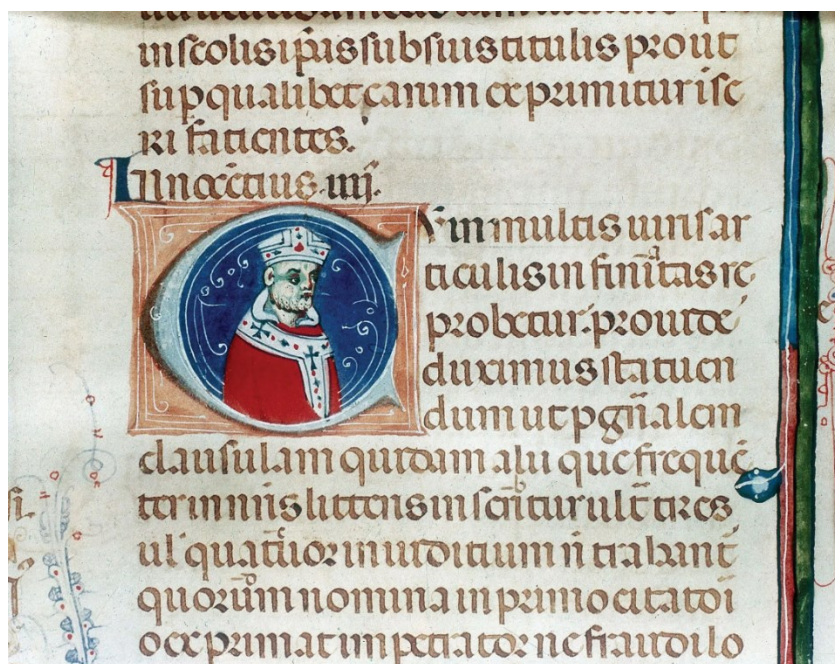 in scolis ip̄as sub suis titulis prout
sup qualibet earum exprimitur ise
ri facientes.
Innocētius .iiij.
Cum in multis iuris ar
ticulis infinitas re
probetur. prouide
duximus statuen
dum ut p gn̄alem
clausulam quidam alii que frequē
ter in nr̄is litteris inscribitur ult̄ tres
ul' quatuor in iudicium n̄ trahant̄
quorum nomina in primo citatoi
o exprimat impetrator ne fraudi lo